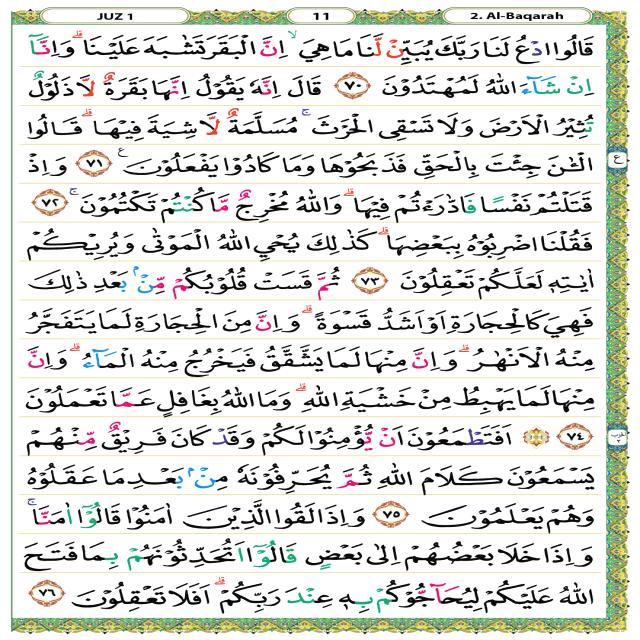 JUZ 1 11 2. Al-Baqarah
قَالُوا ادْعُ لَنَا رَبَّكَ يُبَيِّنْ لَّنَا مَا هِيَ ۙ اِنَّ الْبَقَرَ تَشٰبَهَ عَلَيْنَا ۗ وَاِنَّآ
اِنْ شَآءَ اللّٰهُ لَمُهْتَدُوْنَ ٧٠ قَالَ اِنَّهٗ يَقُوْلُ اِنَّهَا بَقَرَةٌ لَّا ذَلُوْلٌ
تُثِيْرُ الْاَرْضَ وَلَا تَسْقِى الْحَرْثَ ۚ مُسَلَّمَةٌ لَّا شِيَةَ فِيْهَا ۗ قَالُوا
الْـٰٔنَ جِئْتَ بِالْحَقِّ فَذَبَحُوْهَا وَمَا كَادُوْا يَفْعَلُوْنَ ࣖ ٧١ وَاِذْ
قَتَلْتُمْ نَفْسًا فَادّٰرَءْتُمْ فِيْهَا ۗ وَاللّٰهُ مُخْرِجٌ مَّا كُنْتُمْ تَكْتُمُوْنَ ۚ ٧٢
فَقُلْنَا اضْرِبُوْهُ بِبَعْضِهَا ۗ كَذٰلِكَ يُحْيِ اللّٰهُ الْمَوْتٰى وَيُرِيْكُمْ
اٰيٰتِهٖ لَعَلَّكُمْ تَعْقِلُوْنَ ٧٣ ثُمَّ قَسَتْ قُلُوْبُكُمْ مِّنْۢ بَعْدِ ذٰلِكَ
فَهِيَ كَالْحِجَارَةِ اَوْ اَشَدُّ قَسْوَةً ۗ وَاِنَّ مِنَ الْحِجَارَةِ لَمَا يَتَفَجَّرُ
مِنْهُ الْاَنْهٰرُ ۗ وَاِنَّ مِنْهَا لَمَا يَشَّقَّقُ فَيَخْرُجُ مِنْهُ الْمَآءُ ۗ وَاِنَّ
مِنْهَا لَمَا يَهْبِطُ مِنْ خَشْيَةِ اللّٰهِ ۗ وَمَا اللّٰهُ بِغَافِلٍ عَمَّا تَعْمَلُوْنَ
٧٤ ۞ اَفَتَطْمَعُوْنَ اَنْ يُّؤْمِنُوْا لَكُمْ وَقَدْ كَانَ فَرِيْقٌ مِّنْهُمْ
يَسْمَعُوْنَ كَلَامَ اللّٰهِ ثُمَّ يُحَرِّفُوْنَهٗ مِنْۢ بَعْدِ مَا عَقَلُوْهُ
وَهُمْ يَعْلَمُوْنَ ٧٥ وَاِذَا لَقُوا الَّذِيْنَ اٰمَنُوْا قَالُوْٓا اٰمَنَّا ۚ
وَاِذَا خَلَا بَعْضُهُمْ اِلٰى بَعْضٍ قَالُوْٓا اَتُحَدِّثُوْنَهُمْ بِمَا فَتَحَ
اللّٰهُ عَلَيْكُمْ لِيُحَاۤجُّوْكُمْ بِهٖ عِنْدَ رَبِّكُمْ ۗ اَفَلَا تَعْقِلُوْنَ ٧٦